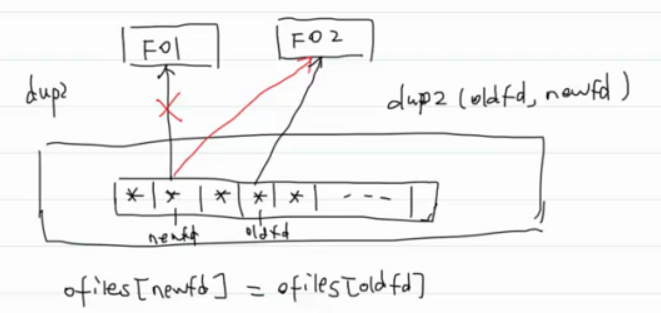 FO1
FO2
dup2
dup2 (oldfd, newfd)
* | * | * | * | * | --- |
newfd
oldfd
ofiles[newfd] = ofiles[oldfd]